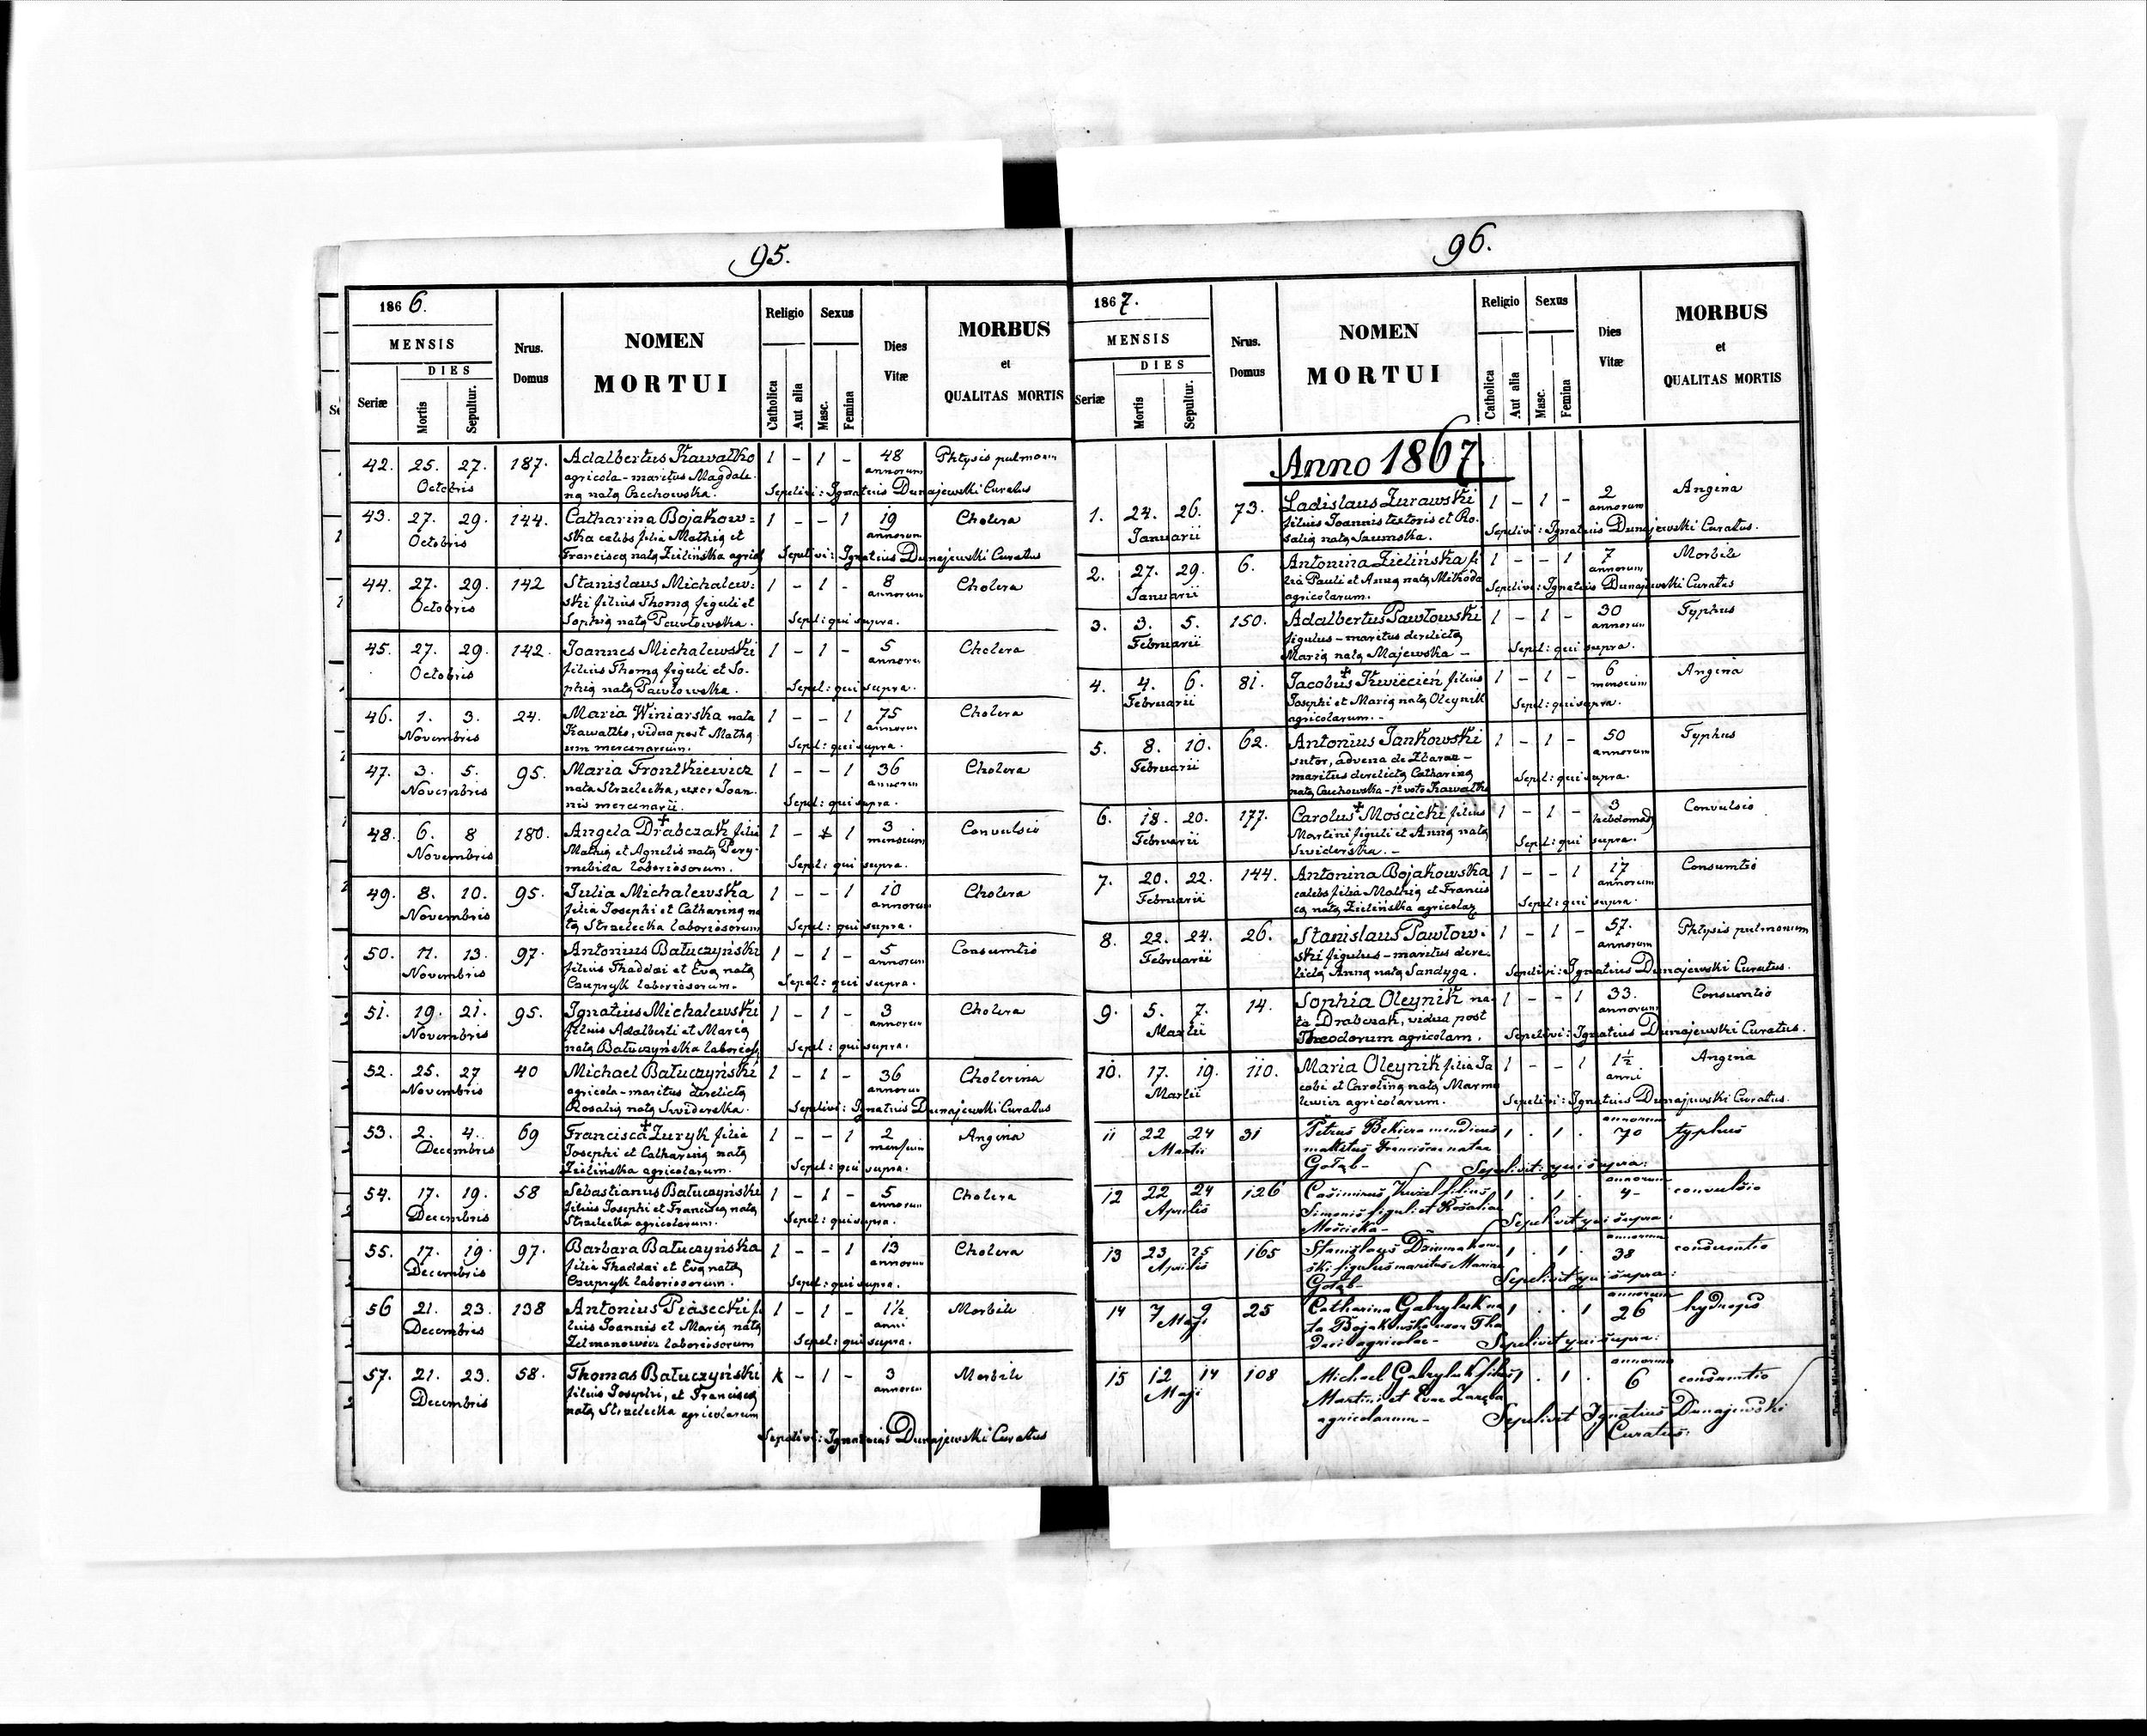 95.
1866.
MENSIS
DIES
Seriæ
Mortis
Sepultur.
Nrus.
Domus
NOMEN
MORTUI
Religio
Catholica
Aut alia
Sexus
Masc.
Femina
Dies
Vitæ
MORBUS
et
QUALITAS MORTIS
42. 25. 27. 187. Adalbertus Kawałko 1 - 1 - 48 Phtysis pulmonum
Octobris agricola - maritus Magdale- annorum
na nata Czechowska. Sepelivi: Ignatius Dunajewski Curatus
43. 27. 29. 144. Catharina Bojakow= 1 - - 1 19 Cholera
Octobris ska calebs filia Mathię et annorum
Francisca nata Zielińska agricol Sepelivi: Ignatius Dunajewski Curatus
44. 27. 29. 142 Stanislaus Michalew= 1 - 1 - 8 Cholera
Octobris ski filius Thomę figuli et annorum
Sophię natę Pawłowska. Sepel: qui supra.
45. 27. 29. 142. Joannes Michalewski 1 - 1 - 5 Cholera
Octobris filius Thomę figuli et So- annorum
phię natę Pawłowska. Sepel: qui supra.
46. 1. 3. 24. Maria Winiarska nata 1 - - 1 75 Cholera
Novembris Kawałko, vidua post Mathę annorum
um mercenarium. Sepel: qui supra.
47. 3. 5. 95. Maria Frontkiewicz 1 - - 1 36 Cholera
Novembris nata Strzelecka, uxor Joan- annorum
nis mercenarii. Sepel: qui supra.
48. 6. 8 180. Angela Drabczak filia 1 - 1 3 Convulsio
Novembris Mathię et Agnetis natę mensium
laboriosorum. Sepel: qui supra.
49. 8. 10. 95. Julia Michalewska 1 - - 1 10 Cholera
Novembris filia Josephi et Catharinę na annorum
tę Strzelecka laboriosorum Sepel: qui supra.
50. 11. 13. 97. Antonius Batuczyński 1 - 1 - 5 Consumtio
Novembris filius Thaddæi et Evę natę annorum
Czupryk laboriosorum. Sepel: qui supra.
51. 19. 21. 95. Ignatius Michalewski 1 - 1 - 3 Cholera
Novembris filius Adalberti et Marię annorum
natę Batuczyńska laborios. Sepel: qui supra.
52. 25. 27 40 Michael Batuczyński 1 - 1 - 36 Cholerina
Novembris agricola - maritus derelictę annorum
Rosalię natę Swiderska. Sepelivi: Ignatius Dunajewski Curatus
53. 2. 4. 69 Francisca Zuryk filia 1 - - 1 2 Angina
Decembris Josephi et Catharinę natę mensium
Zielińska agricolarum. Sepel: qui supra.
54. 17. 19. 58 Sebastianus Batuczyński 1 - 1 - 5 Cholera
Decembris filius Josephi et Franciscę natę annorum
Strzelecka agricolarum. Sepel: qui supra.
55. 17. 19. 97. Barbara Batuczyńska 1 - - 1 13 Cholera
Decembris filia Thaddæi et Evę natę annorum
Czupryk laboriosorum. Sepel: qui supra.
56 21. 23. 138 Antonius Piasecki fi 1 - 1 - 1½ Morbili
Decembris lius Joannis et Marię natę anni
Zelmanowicz laboriosorum Sepel: qui supra.
57. 21. 23. 58. Thomas Batuczyński - 1 - 3 Morbili
Decembris filius Josephi, et Franciscę annorum
natę Strzelecka agricolarum
Sepelivi: Ignatius Dunajewski Curatus
96.
1867.
MENSIS
DIES
Seriæ
Mortis
Sepultur.
Nrus.
Domus
NOMEN
MORTUI
Religio
Catholica
Aut alia
Sexus
Masc.
Femina
Dies
Vitæ
MORBUS
et
QUALITAS MORTIS
Anno 1867.
1. 24. 26. 73. Ladislaus Żurawski 1 - 1 - 2 Angina
Januarii filius Joannis textoris et Ro- annorum
salię natę Saumska. Sepelivi: Ignatius Dunajewski Curatus.
2. 27. 29. 6. Antonina Zielińska fi 1 - - 1 7 Morbili
Januarii lia Pauli et Annę natę Mikoda annorum
agricolarum. Sepelivi: Ignatius Dunajewski Curatus
3. 3. 5. 150. Adalbertus Pawłowski 1 - 1 - 30 Typhus
Februarii figulus - maritus derelictę annorum
Marię natę Majewska - Sepel: qui supra.
4. 4. 6. 81. Jacobus Kwiecień filius 1 - 1 - 6 Angina
Februarii Josephi et Marię natę Oleynik mensium
agricolarum. - Sepel: qui supra.
5. 8. 10. 62. Antonius Jankowski 1 - 1 - 50 Typhus
Februarii sutor, advena de Zbaraz - annorum
maritus derelictę Catharinę Sepel: qui supra.
natę Czechowska - 1º voto Kawałko
6. 18. 20. 177. Carolus Mościcki filius 1 - 1 - 3 Convulsio
Februarii Martini figuli et Annę natę hebdomad
Swiderska. - Sepel: qui supra.
7. 20. 22. 144. Antonina Bojakowska 1 - - 1 17 Consumtio
Februarii calebs filia Mathię et Francis annorum
cę natę Zielińska agricolar Sepel: qui supra.
8. 22. 24. 26. Stanislaus Pawłow- 1 - 1 - 57. Phtysis pulmonum
Februarii ski figulus - maritus dere- annorum
lictę Annę natę Sandyga. Sepelivi: Ignatius Dunajewski Curatus.
9. 5. 7. 14. Sophia Oleynik na- 1 - - 1 33. Consumtio
Martii ta Drabczak, vidua post annorum
Theodorum agricolam. Sepelivi: Ignatius Dunajewski Curatus.
10. 17. 19. 110. Maria Oleynik filia Ja 1 - - 1 1½ Angina
Martii cobi et Carolinę natę Marmo anni
lewicz agricolarum. Sepelivi: Ignatius Dunajewski Curatus.
11 22 24 31 Petrus Bekiera mendicus 1 . 1 . annorum 70 typhus
Martii maritus Franciscae natae
Gołąb - Sepelivit: qui supra:
12 22 24 126 Casimirus filius 1 . 1 . annorum 4 - convulsio
Aprilis Simonis figuli et Rosaliae
Mościcka - Sepelivit qui supra:
13 23 25 165 Stanislaus 1 . 1 . annorum 38 consumtio
Aprilis ski figulus maritus Mariae
Gołąb - Sepelivit qui supra:
14 7 9 25 Catharina Gabryluk na 1 . . 1 annorum 26 hydrops
Maji ta Bojakowska uxor Tha
daei agricolae - Sepelivit qui supra:
15 12 14 108 Michael Gabryluk filius 1 . 1 . annorum 6 consumtio
Maji Martini et Evae Zaręba
agricolarum - Sepelivit Ignatius Dunajewski
Curatus.